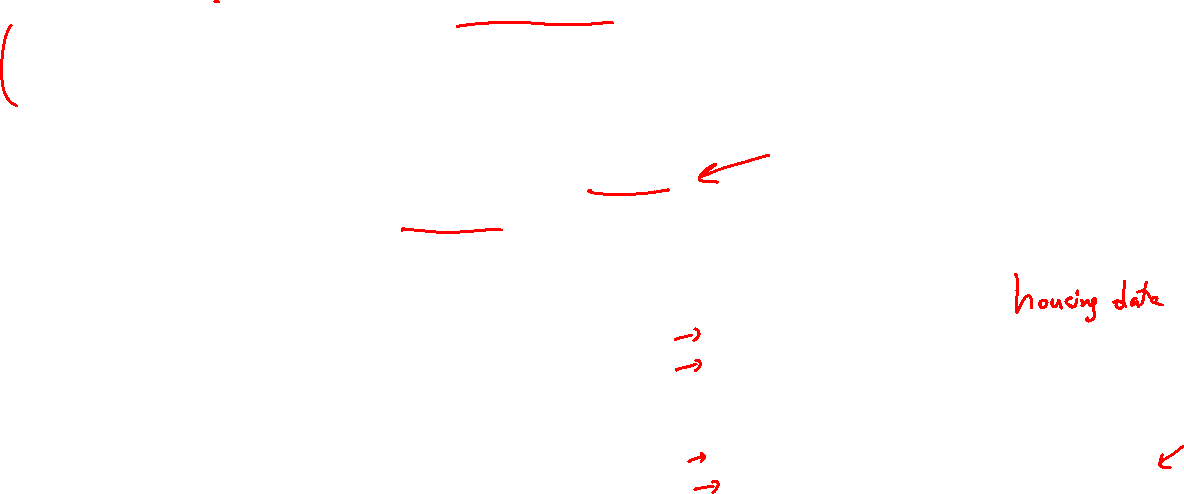 housing date